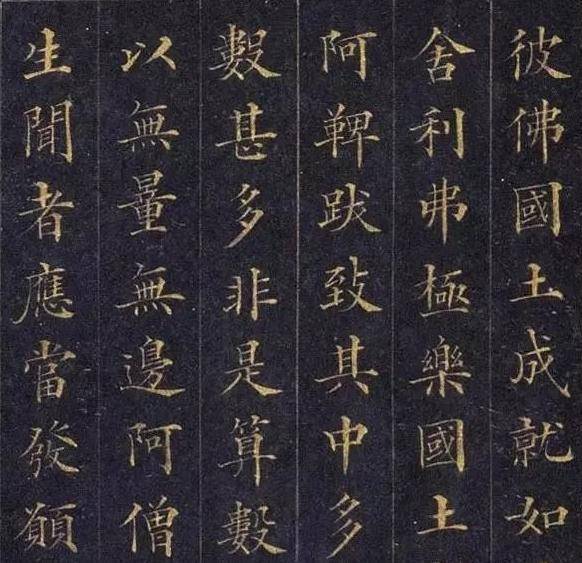 彼佛國土成就如
舍利弗極樂國土
阿鞞跋致其中多
數甚多非是算數
以無量無邊阿僧
生聞者應當發願